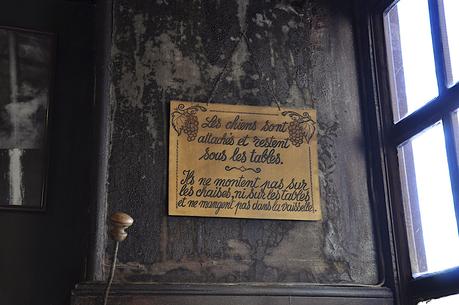 Les chiens sont
attachés et restent
sous les tables.
Ils ne montent pas sur
les chaises, ni sur les tables
et ne mangent pas dans la vaisselle.